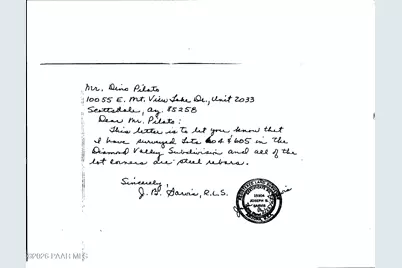 Mr. Dino Pilato
10055 E. Mt. View Lake Dr., Unit 2033
Scottsdale, Az. 85258
Dear Mr. Pilato:
This letter is to let you know that
I have surveyed Lots 604 & 605 in the
Diamond Valley Subdivision and all of the
lot corners are steel rebars.
Sincerely,
J. B. Jarvis, R.L.S.
JOSEPH B.
JARVIS
©2026 PAAR MLS